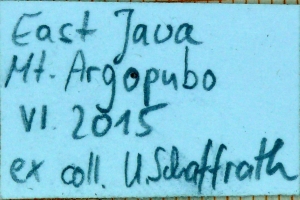 East Java
Mt. Argopubo
VI. 2015
ex coll. U.Schaffrath